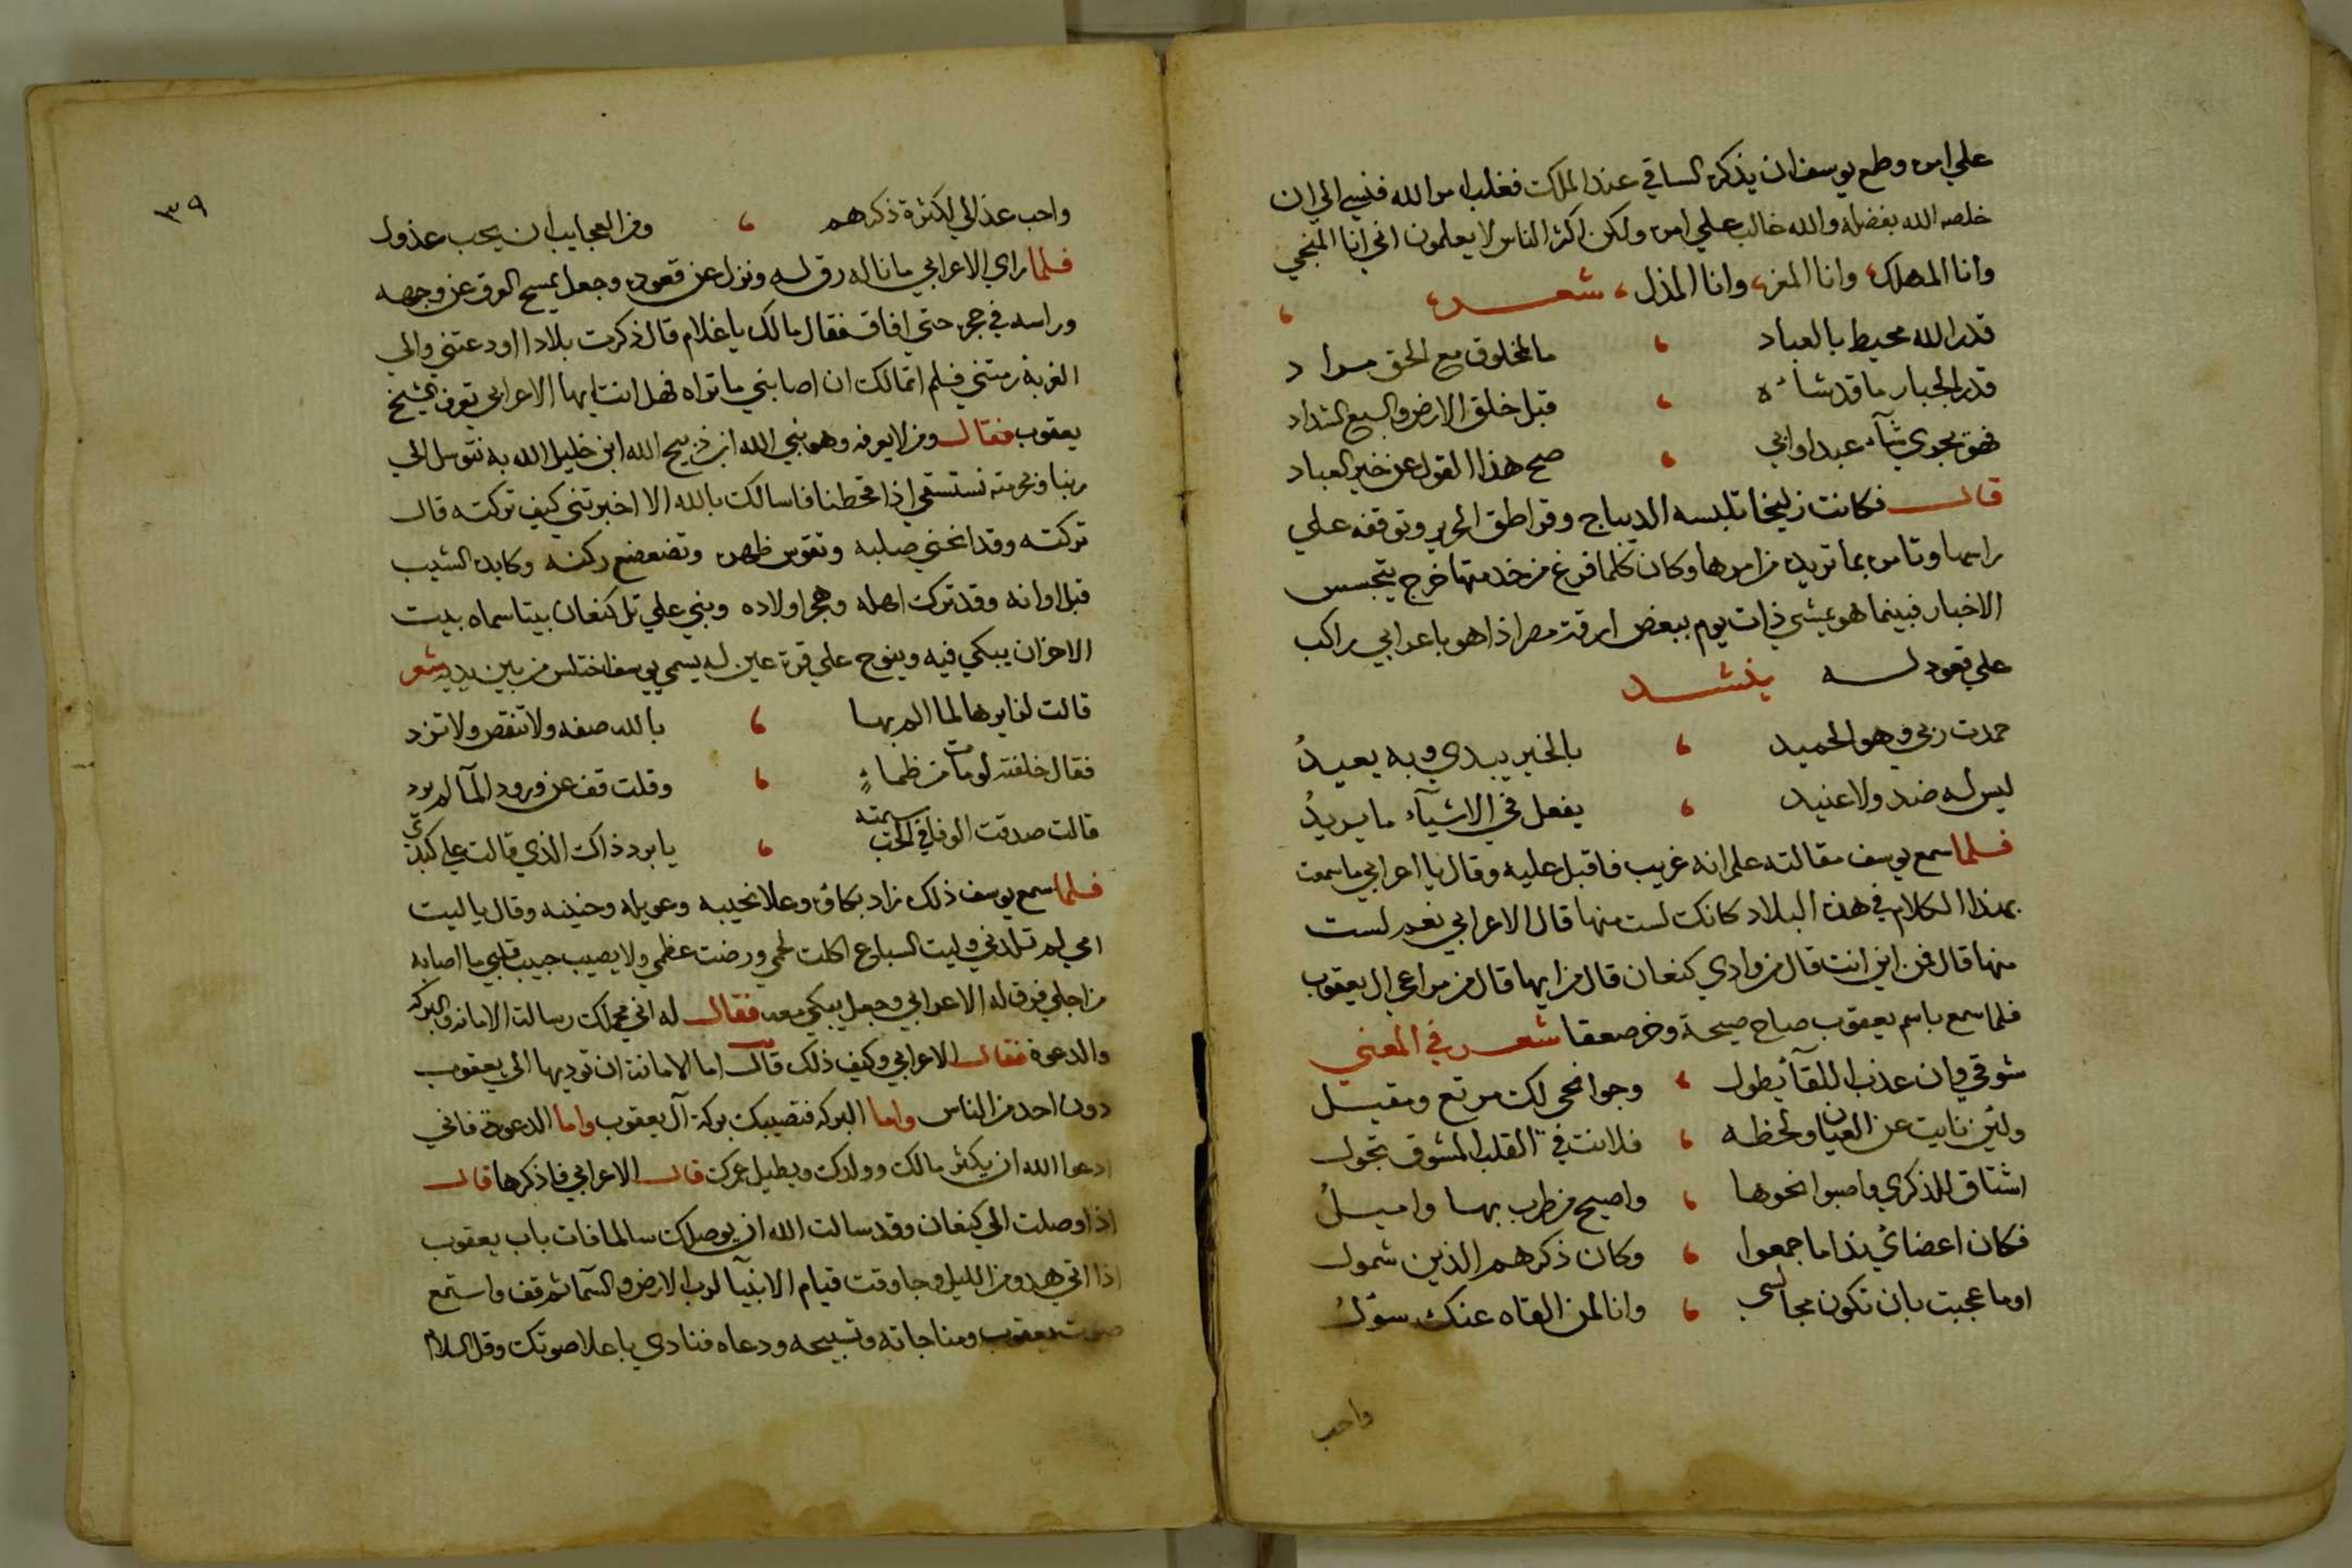 علي امره وطمع يوسف ان يذكره الساقي عند الملك فغلب امر الله فنسي الي ان
خلصه الله بفضله والله غالب علي امره ولكن اكثر الناس لا يعلمون اني انا المنجي
وانا المهلك وانا المعز وانا المذل شعر
قدر الله محيط بالعباد ، ما لمخلوق مع الحق مراد
قدر الجبار ما قد شاءه ، قبل خلق الارض والسبع الشداد
فهو يجري شآء عبد او ابي ، صح هذا القول عن خير العباد
قال فكانت زليخا تلبسه الديباج وقراطق الحرير وتوقفه علي
راسها وتامره بما تريده من امرها وكان كلما فرغ من خدمتها خرج يتجسس
الاخبار فبينما هو يمشي ذات يوم ببعض ازقة مصر اذا هو باعرابي راكب
علي قعود له ينشد
حمدت ربي وهو الحميد ، بالخير يبدي وبه يعيدُ
ليس له ضد ولا عنيد ، يفعل في الاشيآء ما يريدُ
فلما سمع يوسف مقالته علم انه غريب فاقبل عليه وقال يا اعرابي ما سمعت
بهذا الكلام في هذه البلاد كانك لست منها قال الاعرابي نعم لست
منها قال فمن اين انت قال من وادي كنعان قال من ايها قال من مراعي ال يعقوب
فلما سمع باسم يعقوب صاح صيحة وخر صعقا شعر في المعني
شوقي وان عذب اللقآ يطول ، وجوانحي لك مرتع ومقيل
ولئن نايت عن العيان ولحظه ، فلانت في القلب المشوق تجول
اشتاق للذكري واصبوا نحوها ، واصيح من طرب بها واميلُ
فكان اعضائي نداما جمعوا ، وكان ذكرهم الذين شمول
اوما عجبت بان تكون مجالسي ، وانا لمن القاه عنك سؤلُ
واحب
٣٩
واحب عذالي لكثرة ذكرهم ، ومن العجايب ان يحب عذول
فلما راي الاعرابي ما ناله رق له ونزل عن قعوده وجعل يمسح العرق عن وجهه
وراسه في حجره حتي افاق فقال مالك يا غلام قال ذكرت بلادا اودعتني والي
الغربة رمتني فلم اتمالك ان اصابني ما تراه فهل انت ايها الاعرابي تعرف الشيخ
يعقوب فقال ومن لا يعرفه وهو نبي الله ابن ذبيح الله ابن خليل الله به نتوسل الي
ربنا وبحرمته نستسقي اذا قحطنا فاسالك بالله الا اخبرتني كيف تركته قال
تركته وقد انحني صلبه وتقوس ظهره وتضعضع ركنه وكابده الشيب
قبل اوانه وقد ترك اهله وهجر اولاده وبني علي تل كنعان بيتا سماه بيت
الاحزان يبكي فيه وينوح علي قرة عين له يسمي يوسف اختلس من بين يديه شعر
قالت لزايرها لما الم بها ، بالله صفه ولا تنقص ولا تزد
فقال خلفته لو مات من ظماءٍ ، وقلت قف عن ورود المآ لم يرد
قالت صدقت الوفا في الحب سمته ، يا برد ذاك الذي قالت علي كبدي
فلما سمع يوسف ذلك زاد بكاؤه وعلا نحيبه وعويله وحنينه وقال يا ليت
امي لم تلدني وليت السباع اكلت لحمي ورضت عظمي ولا يصيب حبيب قلبي ما اصابه
من اجلي فرق له الاعرابي وجعل يبكي معه فقال له اني محملك رسالة الامانة والبركه
والدعوة فقال الاعرابي وكيف ذلك قال اما الامانة ان توديها الي يعقوب
دون احد من الناس واما البركه فتصيبك بركة آل يعقوب واما الدعوة فاني
ادعوا الله ان يكثر مالك وولدك ويطيل عمرك قال الاعرابي فاذكرها قال
اذا وصلت الي كنعان وقد سالت الله ان يوصلك سالما فات باب يعقوب
اذا اتي هدو من الليل وجا وقت قيام الانبيآ لرب الارض والسما ثم قف واستمع
صوت يعقوب ومناجاته وتسبيحه ودعاه فنادي باعلا صوتك وقل السلام